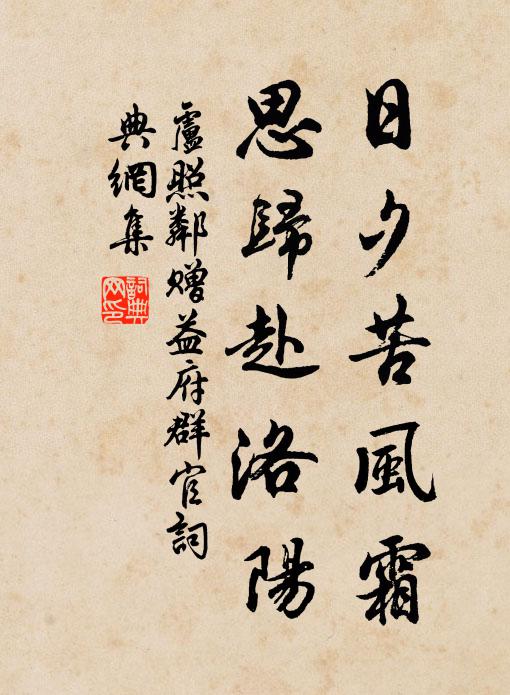 日夕苦風霜
思歸赴洛陽
盧照鄰贈益府群官詞
典網集
詞典
网印